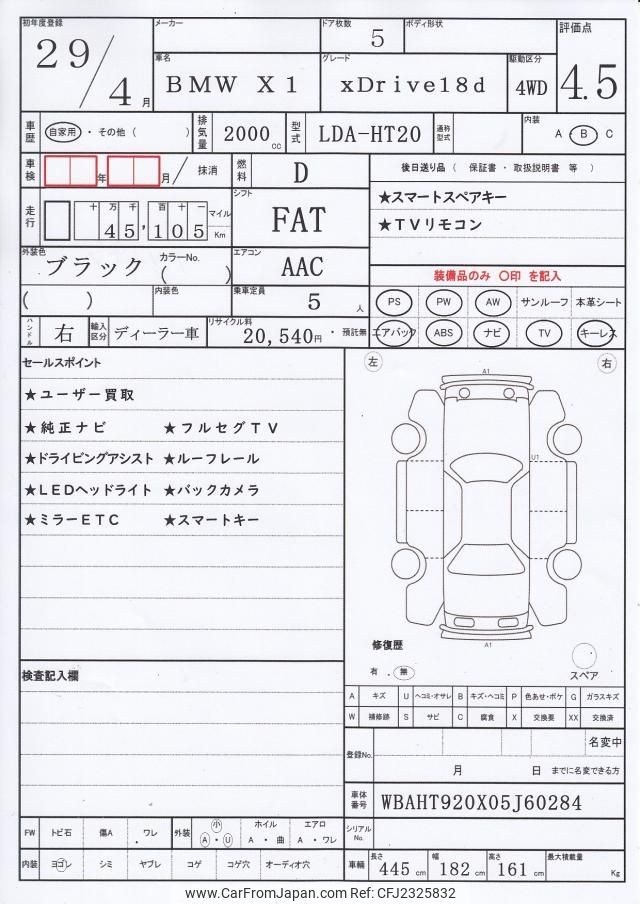 初年度登録
29/4月
メーカー
ドア枚数
5
ボディ形状
評価点
4.5
車名
BMW X1
グレード
xDrive18d
駆動区分
4WD
車歴
自家用 ・ その他 ( )
排気量
2000 cc
型式
LDA-HT20
通称型式
内装
A ・ B ・ C
車検
年 月 / 抹消
燃料
D
後日送り品 ( 保証書 ・ 取扱説明書 等 )
★スマートスペアキー
★TVリモコン
走行
十 万 千 百 十 一
45,105
マイル
Km
シフト
FAT
外装色
ブラック
カラーNo.
( )
エアコン
AAC
装備品のみ 〇印 を記入
( )
内装色
乗車定員
5 人
PS PW AW サンルーフ 本革シート
エアバック ABS ナビ TV キーレス
ハンドル
右
輸入区分
ディーラー車
リサイクル料
20,540円 ・ 預託無
セールスポイント
★ユーザー買取
★純正ナビ ★フルセグTV
★ドライビングアシスト ★ルーフレール
★LEDヘッドライト ★バックカメラ
★ミラーETC ★スマートキー
左
右
A1
U1
A1
修復歴
有 . 無
スペア
検査記入欄
A キズ U ヘコミ・オサレ B キズ・ヘコミ P 色あせ・ボケ G ガラスキズ
W 補修跡 S サビ C 腐食 X 交換要 XX 交換済
登録No.
名変中
月 日 までに名変できる方
車体番号
WBAHT920X05J60284
シリアルNo.
FW トビ石 傷A ワレ
外装 小 A ・ U
ホイル A ・ 曲
エアロ A ・ ワレ
内装 ヨゴレ シミ ヤブレ コゲ コゲ穴 オーディオ穴
車輌
長さ 445 cm
幅 182 cm
高さ 161 cm
最大積載量 Kg
www.CarFromJapan.com Ref: CFJ2325832